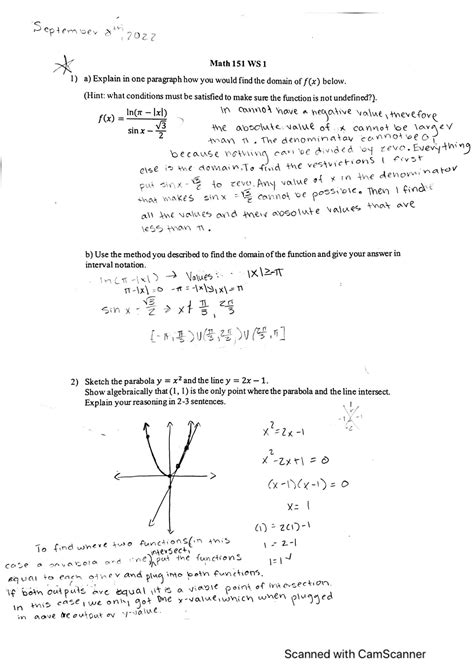 September 8th, 2022
Math 151 WS 1
1) a) Explain in one paragraph how you would find the domain of f(x) below.
(Hint: what conditions must be satisfied to make sure the function is not undefined?).
f(x) = ln(π − |x|) / (sin x − √3/2)
ln cannot have a negative value, therefore
the absolute value of x cannot be larger
than π. The denominator cannot be 0
because nothing can be divided by zero. Everything
else is the domain. To find the restrictions I first
put sinx − √3/2 to zero. Any value of x in the denominator
that makes sinx = √3/2 cannot be possible. Then I find
all the values and their absolute values that are
less than π.
b) Use the method you described to find the domain of the function and give your answer in
interval notation.
ln(π−|x|) → Values: |x|≥π
π−|x|=0 −π=−|x| |x|=π
sin x − √3/2 → x ≠ π/3, 2π/3
[−π, π/3) U (π/3, 2π/3) U (2π/3, π]
2) Sketch the parabola y = x² and the line y = 2x − 1.
Show algebraically that (1, 1) is the only point where the parabola and the line intersect.
Explain your reasoning in 2-3 sentences.
x²=2x−1
x²−2x+1=0
(x−1)(x−1)=0
x=1
(1)=2(1)−1
1=2−1
1=1✓
-1 -1
-2
To find where two functions (in this
case a parabola and line) intersect, put the functions
equal to each other and plug into both functions.
If both outputs are equal, it is a viable point of intersection.
In this case, we only got one x-value, which when plugged
in gave output y-value.
Scanned with CamScanner